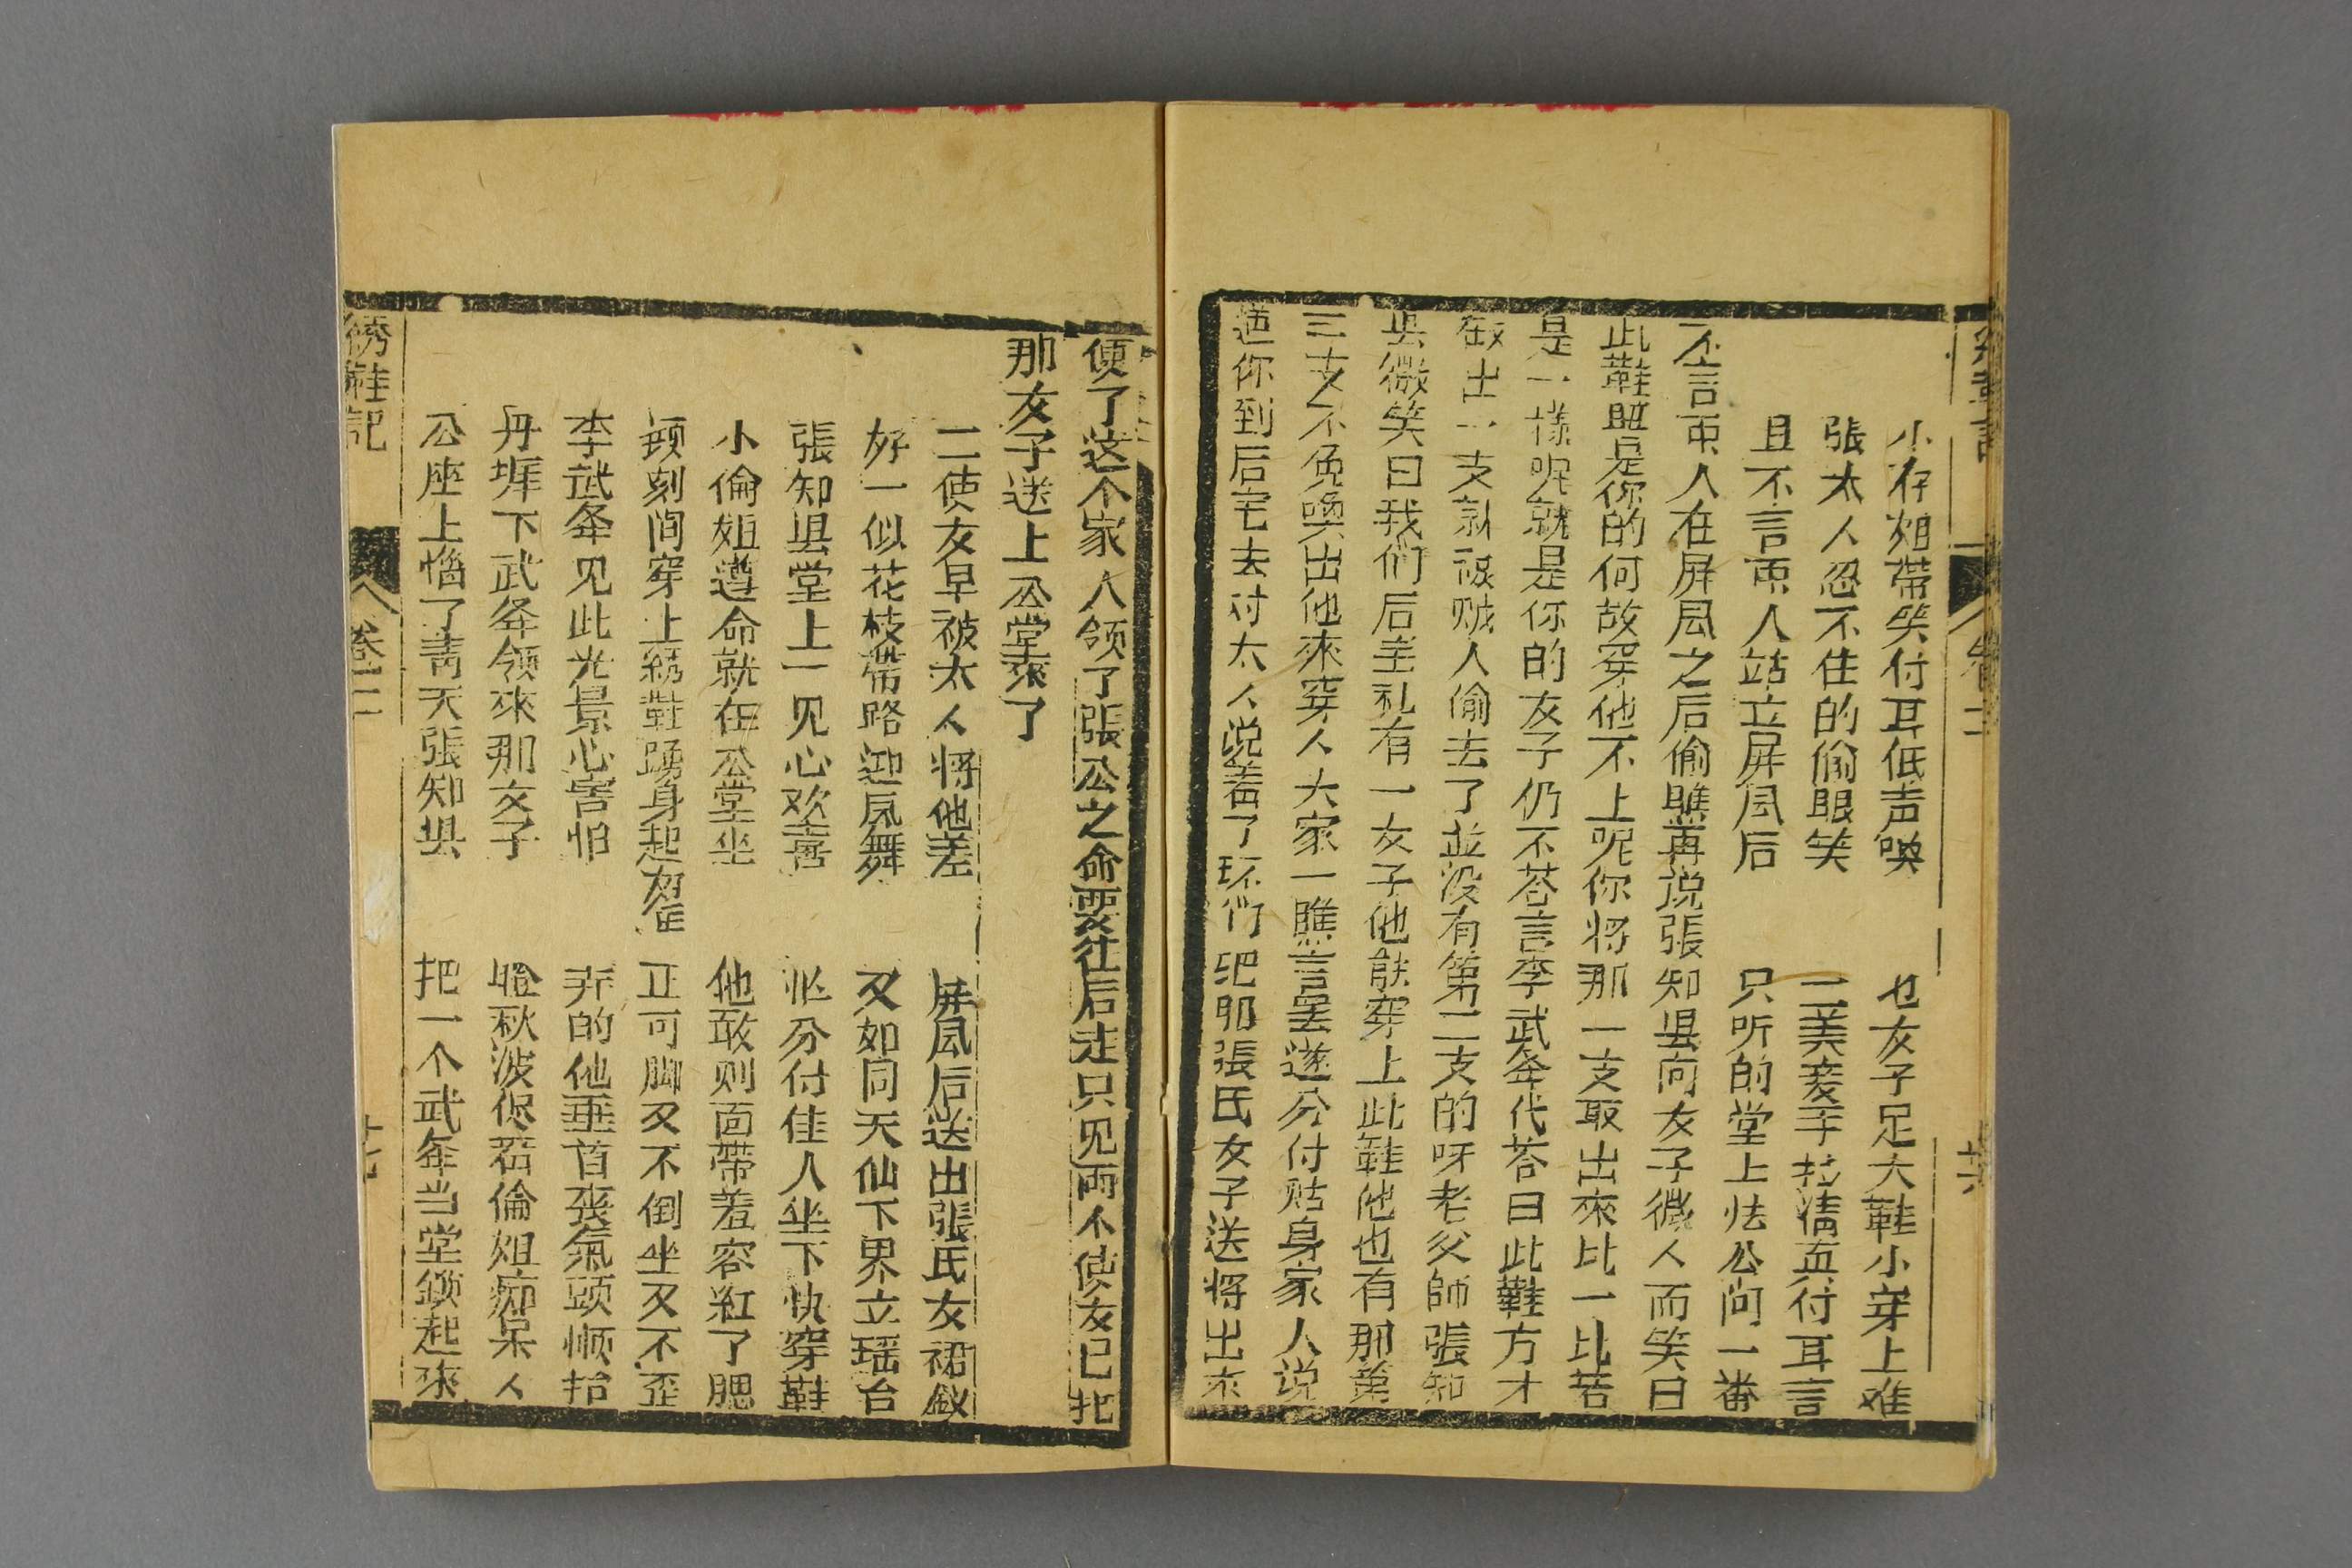 小存姐帶笑付耳低声喚 也女子足大鞋小穿上难
張太人忍不住的偷眼笑 二美妾手拉情面付耳言
且不言兩人站立屏風后 只听的堂上怯公问一番
不言兩人在屏風之后偷瞧再说張知县向女子微人而笑曰
此鞋既是你的何故穿他不上呢你将那一支取出來比一比若
是一樣呢就是你的女子仍不荅言李武夆代荅曰此鞋方才
做出一支就被贼人偷去了並没有第二支的呀老父師張知
县微笑曰我们后宅礼有一女子他能穿上此鞋他也有那第
三支不免喚出他來穿人大家一瞧言罢遂分付贴身家人说
道你到后宅去对太人说着了环们把那張氏女子送将出來
便了这个家人领了張公之命要往后走只见两个使女已把
那女子送上公堂來了
二使女早被太人将他差 屏風后送出張氏女裙釵
好一似花枝帶路迎風舞 又如同天仙下界立瑶台
張知县堂上一见心欢喜 忙分付佳人坐下快穿鞋
小倫姐遵命就在公堂坐 他敢则面帶羞容紅了腮
頃刻间穿上綉鞋踴身起 正可脚又不倒坐又不歪
李武夆见此光景心害怕 弄的他垂首丧氣頭懒抬
丹墀下武夆领來那女子 瞪秋波偢着倫姐痴呆人
公座上惱了青天張知县 把一个武夆当堂鎖起來
綉鞋記 卷二 十七